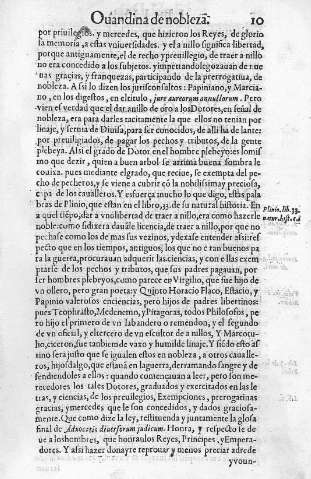 Ouandina de nobleza. 10
por priuilegios, y mercedes, que hizieron los Reyes, de glorio
la memoria, a estas vniuersidades. y el anillo significa libertad,
porque antiguamente, el derecho y preuilegio, de traer anillo
no era concedido a los subjetos. y impetrando lo gozauan de
nas gracias, y franquezas, participando de la prerrogatiua, de
nobleza. Assi lo dizen los jurisconsultos: Papiniano, y Marcia
no, en los digestos, en el titulo, jure aureorum annullorum. Pero
vien es verdad que el dar anillo de oro a los Dotores, en señal de
nobleza, era para darles tacitamente la que ellos no tenian por
linaje, y sernia de Diuisa, para ser conocidos, de alli ha de lante:
por preuiligiados, de pagar los pechos y tributos, de la gente
plebeya. Assi el grado de Dotor en el hombre plebeyo: es lo mis
mo que dezir, quien a buen arbol se arrima buena sombra le
couija. pues mediante el grado, que reciue, se exempta del pe-
cho de pecheros, y se viene a cubrir có la nobilissima y preciosa,
capa de los caualleros. Y esfuerça mucho lo que digo, estas pala
bras de Plinio, que estan en el libro, 33. de su natural historia. En
a quel tiépo, dar a vno libertad de traer anillo, era como hazerle
noble: como si dixera dauále licencia, de traer anillo, por que no
pechase como los demas sus vezinos, y de xase entender assi: res
pecto que en los tiempos, antiguos, los que no eran buenos pa
ra la guerra, procurauan adquerir las ciencias, y con ellas exem
ptarse de los pechos y tributos, que sus padres pagauan, por
ser hombres plebeyos, como parece en Virgilio, que fue hijo de
vn ollero, pero gran poeta: y Quinto Horacio Flaco, Estacio, y
Papinio valerosos en ciencias, pero hijos de padres libertinos:
pues Teophrasto, Medenemo, y Pitagoras, todos Philosofos, pe
ro hijo el primero de vn labandero o remendon, y el segundo
de vn oficial, y el tercero de vn escultor de anillos. Y Marco tu-
lio, ciceron, fue tambien de vaxo y humilde linaje. Y siédo esto assi
no sera justo que se igualen estos en nobleza, a otros caualle-
ros, hijosdalgo, que están en la guerra, derramando sangre y de
fendiendoles a ellos: quando comiençauan a leer, pero son me-
recedores los tales Dotores, graduados y exercitados en las le
tras, y ciencias, de los preuilegios, Exempciones, prerrogatinas
gracias, y mercedes, que le son concedidos, y dados graciosa-
mente. Que como dize la ley, restituenda y juntamente la glosa
final de Aduocatis diuersorum judicum. Honra, y respecto se de
ue a los hombres, que honraulos Reyes, Principes, y Empera-
dores. Y assi hazer donayre reprouar y menos preciar adrede
y voun-
Plinio. lib. 33.
natur. hist. c. 1